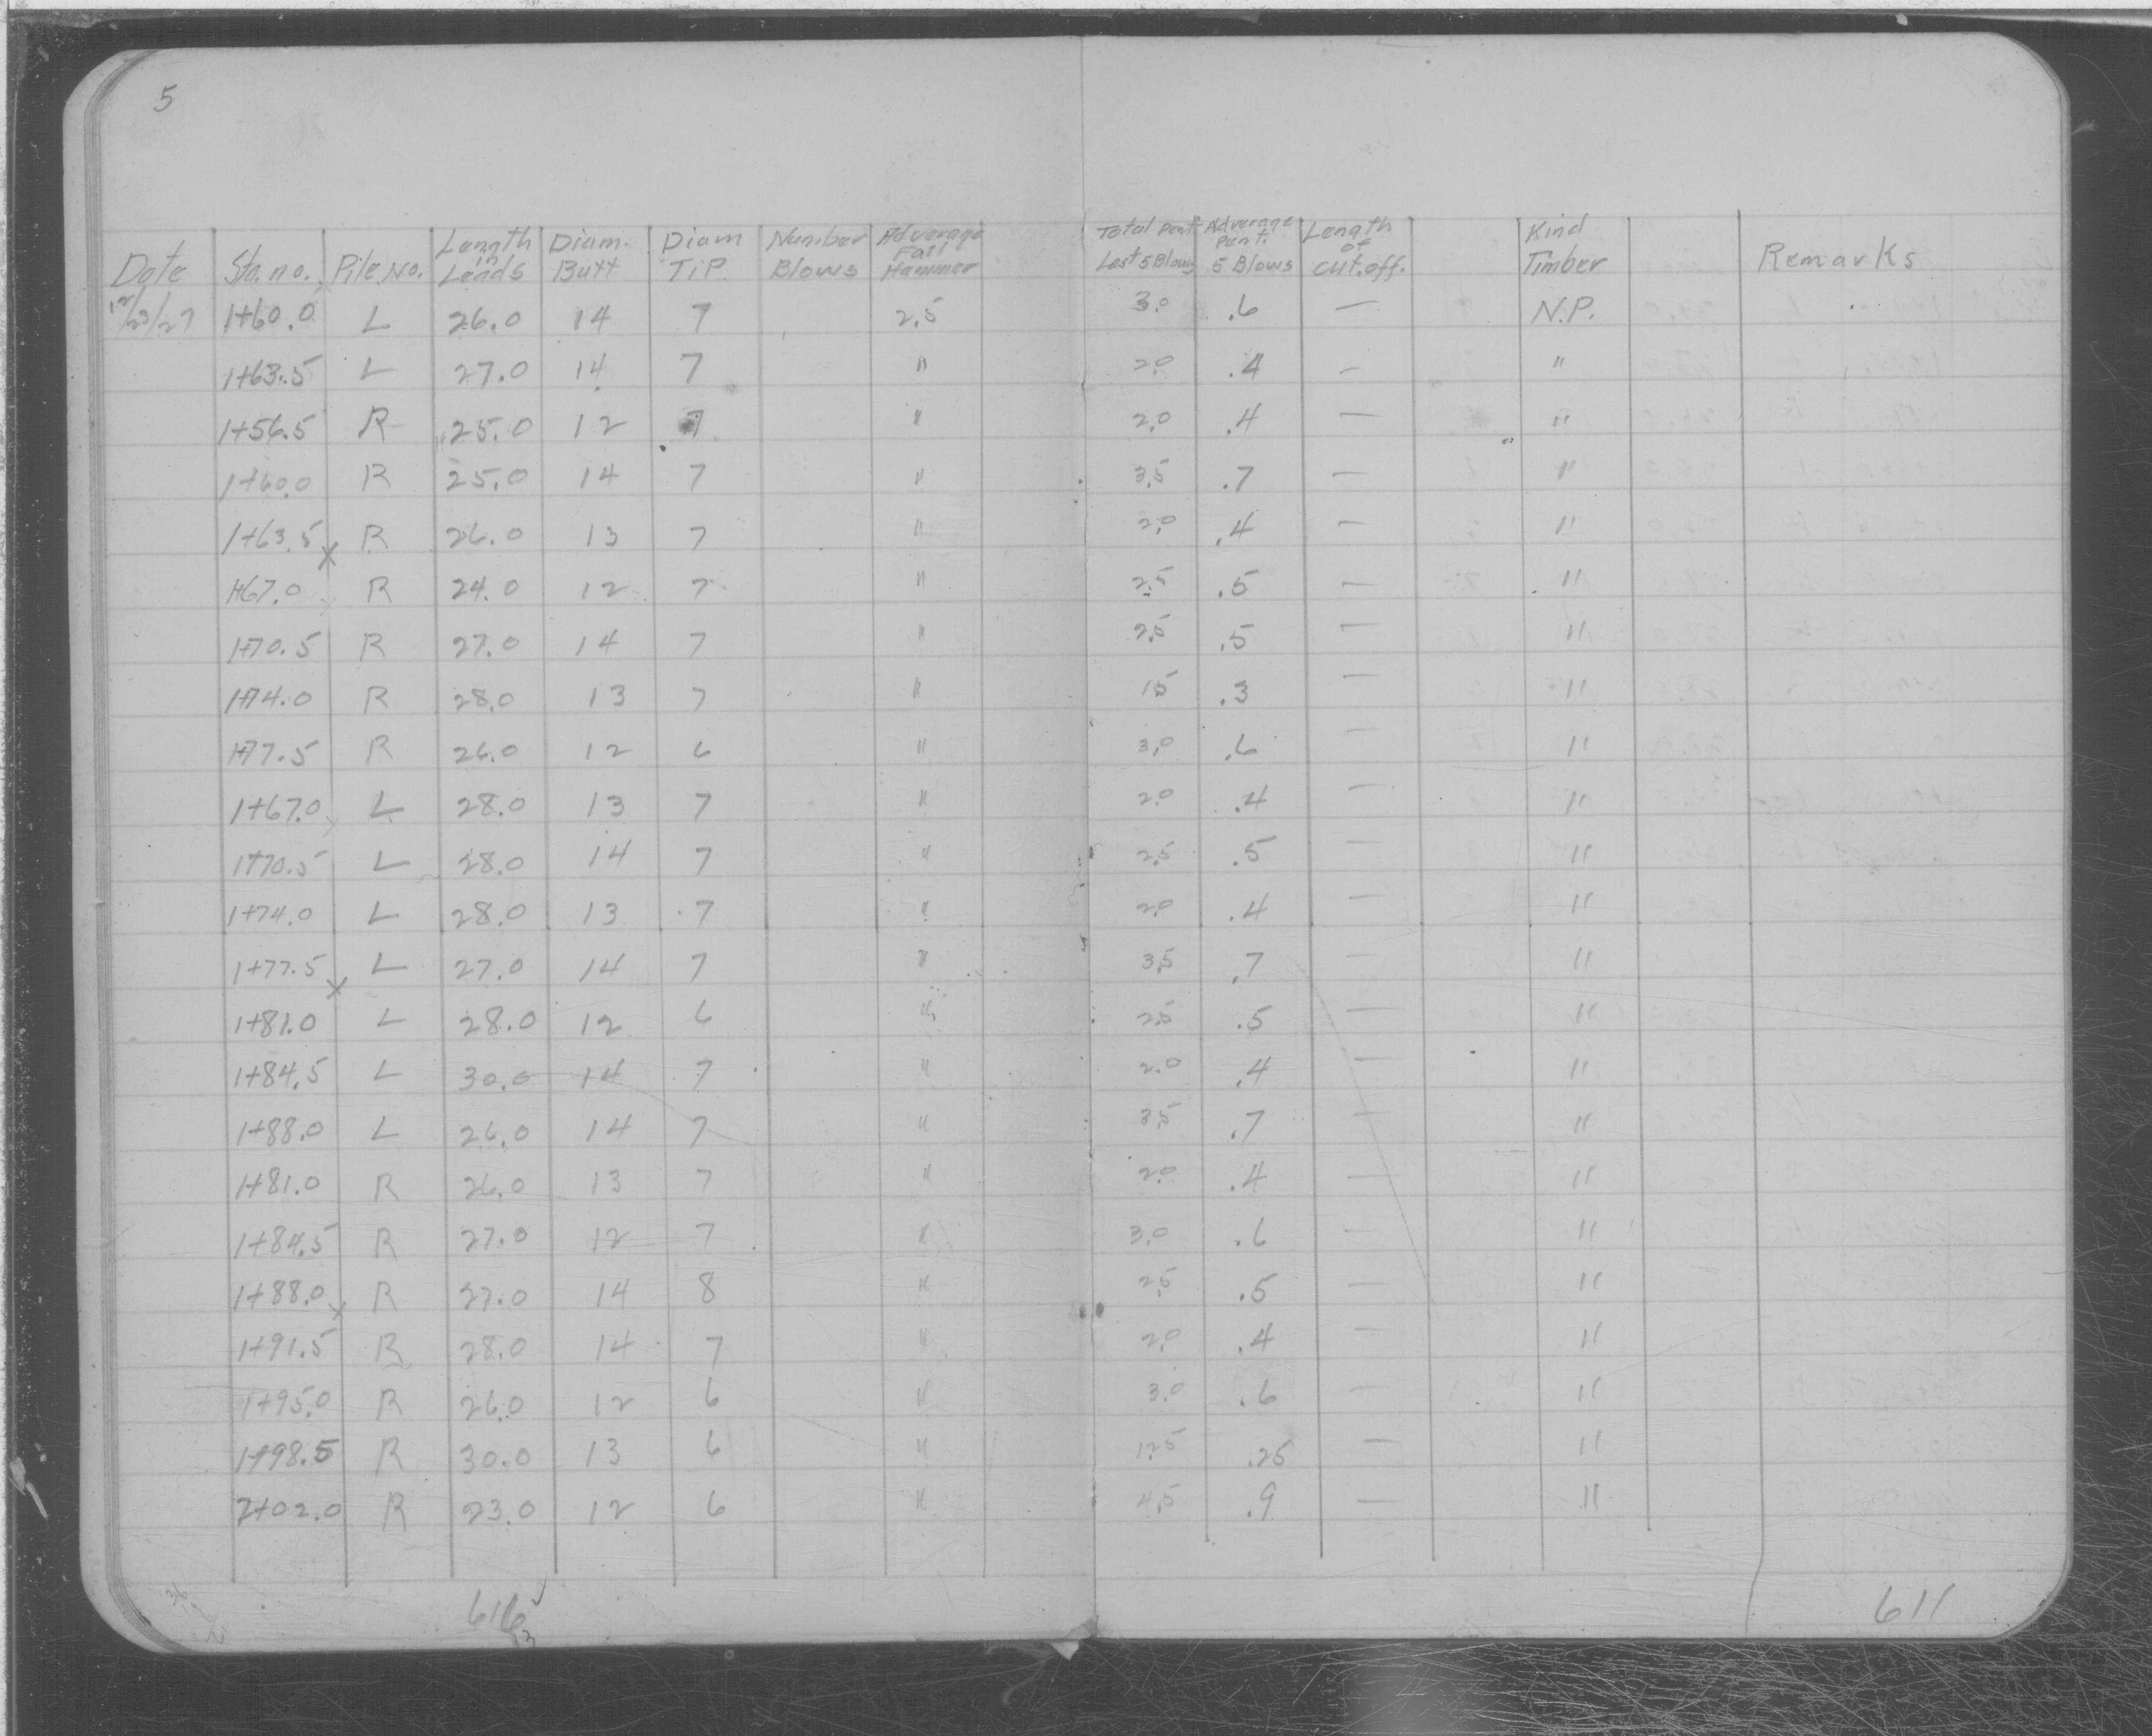 5
Date Sta. no. Pile No. Length in Leads Diam. Butt Diam TiP. Number Blows Adverage Fall Hammer Total Pent Last 5 Blows Adverage Pent. 5 Blows Length of cut.off. Kind Timber Remarks
12/23/27 1+60.0 L 26.0 14 7 2.5 3.0 .6 — N.P.
1+63.5 L 27.0 14 7 " 2.0 .4 — "
1+56.5 R 25.0 12 7 " 2.0 .4 — "
1+60.0 R 25.0 14 7 " 3.5 .7 — "
1+63.5 x R 26.0 13 7 " 2.0 .4 — "
1+67.0 R 24.0 12 7 " 2.5 .5 — "
1+70.5 R 27.0 14 7 " 2.5 .5 — "
1+74.0 R 28.0 13 7 " 1.5 .3 — "
1+77.5 R 26.0 12 6 " 3.0 .6 — "
1+67.0 L 28.0 13 7 " 2.0 .4 — "
1+70.5 L 28.0 14 7 " 2.5 .5 — "
1+74.0 L 28.0 13 7 " 2.0 .4 — "
1+77.5 x L 27.0 14 7 " 3.5 .7 — "
1+81.0 L 28.0 12 6 " 2.5 .5 — "
1+84.5 L 30.0 14 7 " 2.0 .4 — "
1+88.0 L 26.0 14 7 " 3.5 .7 — "
1+81.0 R 26.0 13 7 " 2.0 .4 — "
1+84.5 R 27.0 12 7 " 3.0 .6 — "
1+88.0 x R 27.0 14 8 " 2.5 .5 — "
1+91.5 R 28.0 14 7 " 2.0 .4 — "
1+95.0 R 26.0 12 6 " 3.0 .6 — "
1+98.5 R 30.0 13 6 " 1.25 .25 — "
2+02.0 R 23.0 12 6 " 4.5 .9 — "
616 611